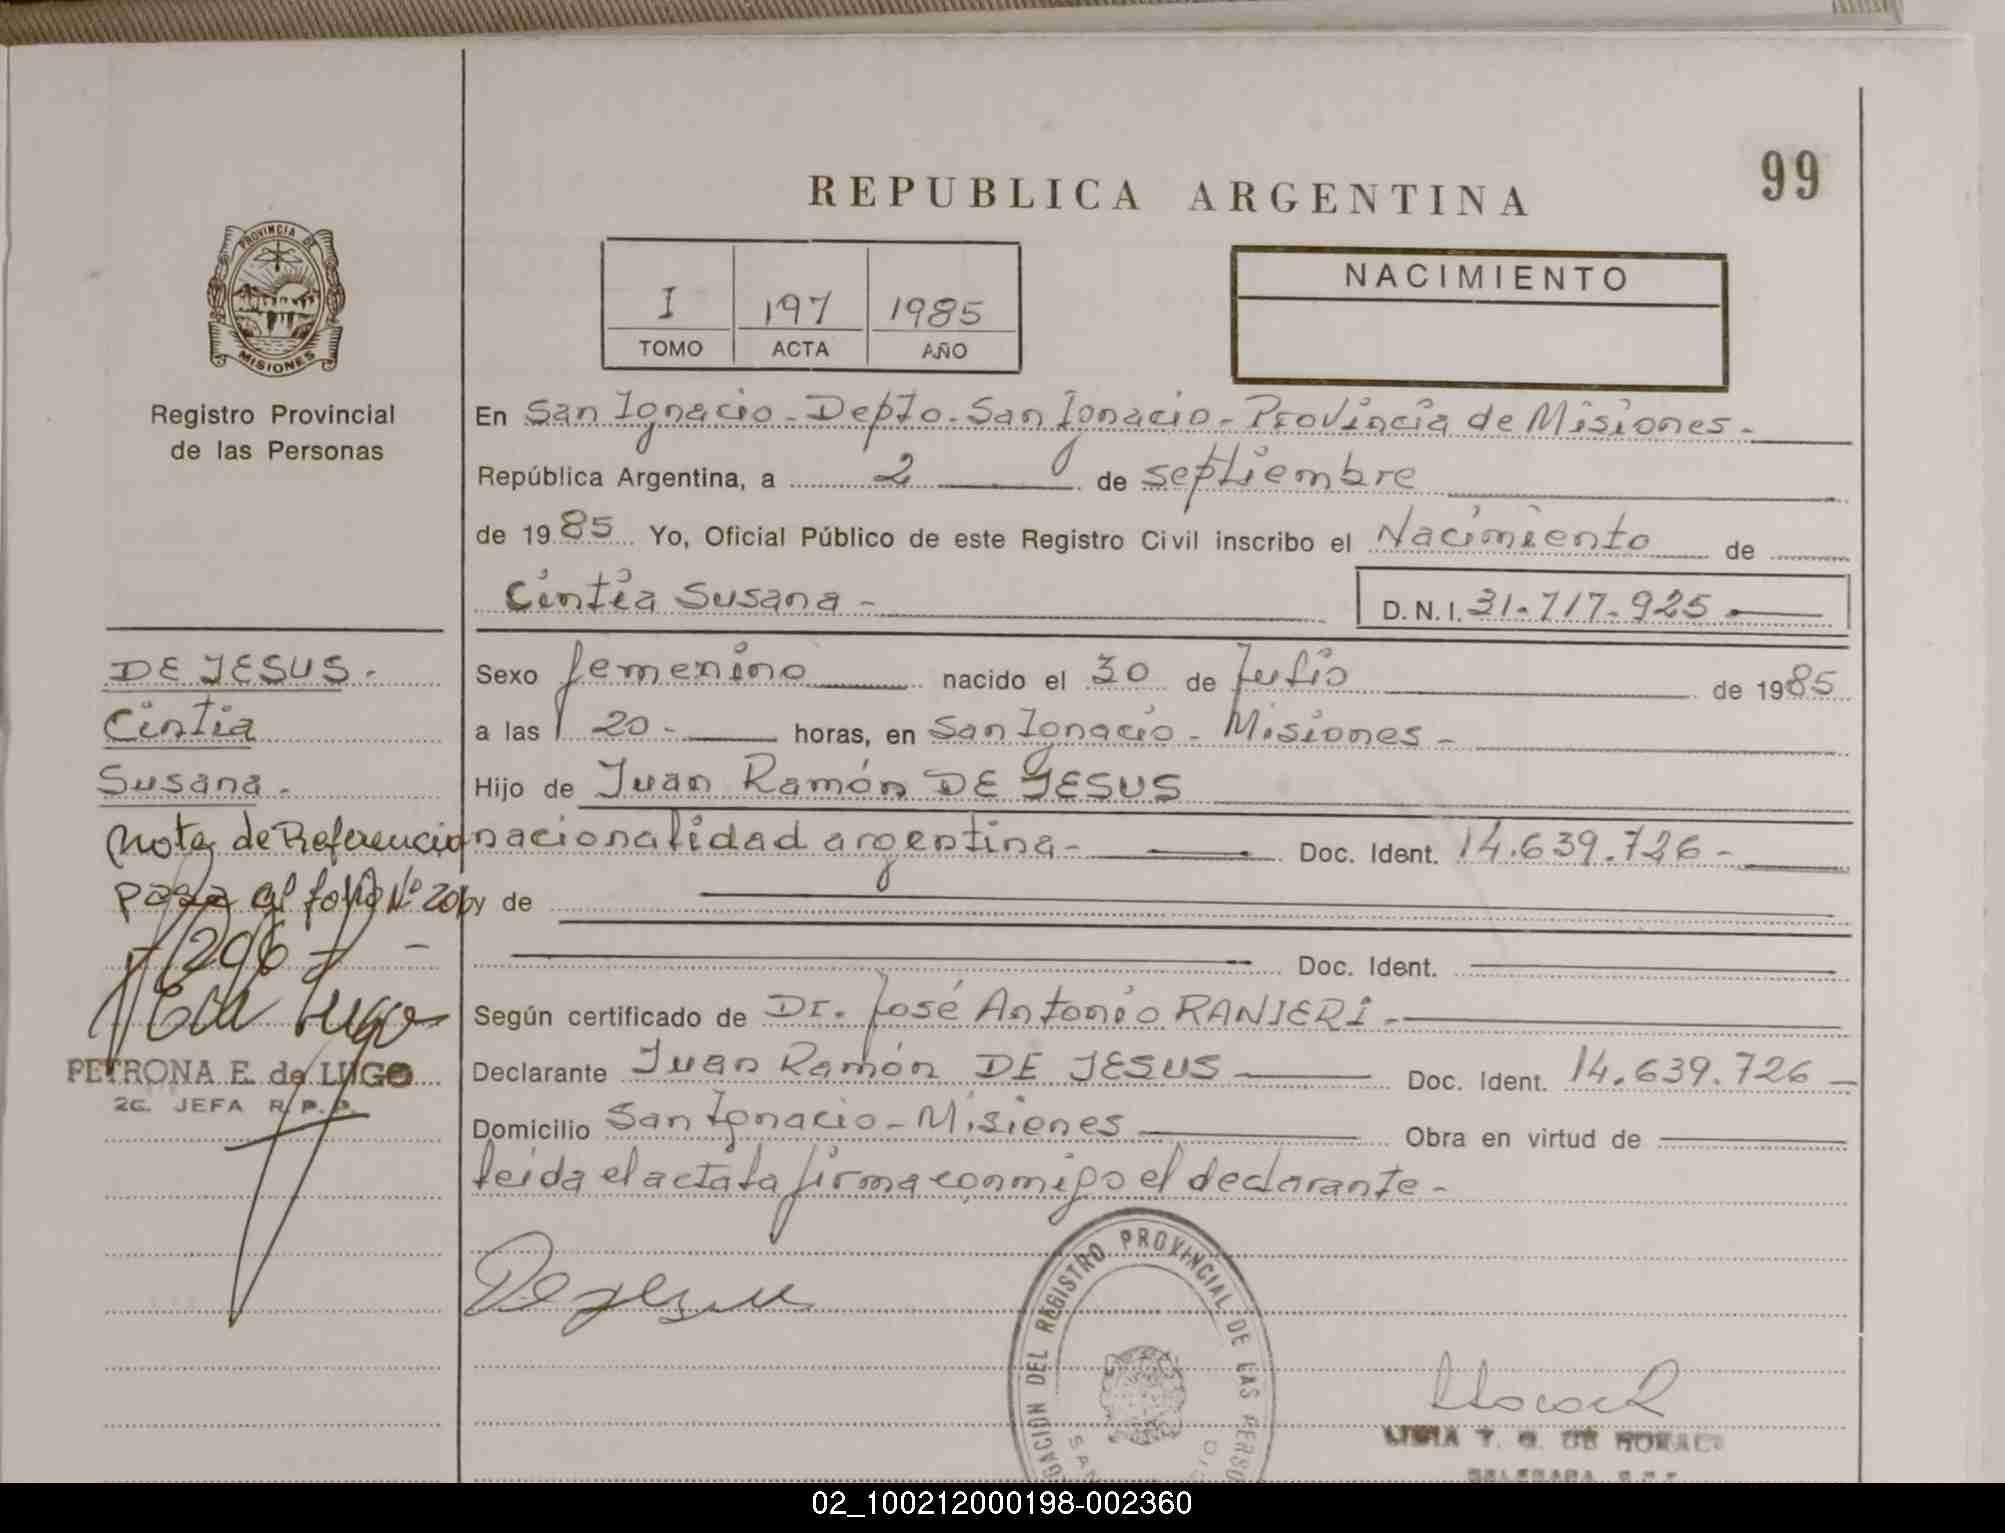 REPUBLICA ARGENTINA
99
PROVINCIA DE
MISIONES
Registro Provincial
de las Personas
I 197 1985
TOMO ACTA AÑO
NACIMIENTO
En San Ignacio - Depto. San Ignacio - Provincia de Misiones -
República Argentina, a 2 de septiembre
de 1985 Yo, Oficial Público de este Registro Civil inscribo el Nacimiento de
Cintia Susana -
D. N. I. 31.717.925 -
DE JESUS -
Cintia
Susana -
Sexo femenino nacido el 30 de Julio de 1985
a las 20 - horas, en San Ignacio - Misiones -
Hijo de Juan Ramón DE JESUS
nacionalidad argentina - Doc. Ident. 14.639.726 -
y de
Doc. Ident.
Nota de Referencia
pasa al folio Nº
PETRONA E. de LUGO
2C. JEFA R. P. P.
Según certificado de Dr. José Antonio RANIERI -
Declarante Juan Ramón DE JESUS Doc. Ident. 14.639.726 -
Domicilio San Ignacio - Misiones Obra en virtud de
leida el acta la firma conmigo el declarante -
DEL REGISTRO PROVINCIAL DE LAS
02_100212000198-002360